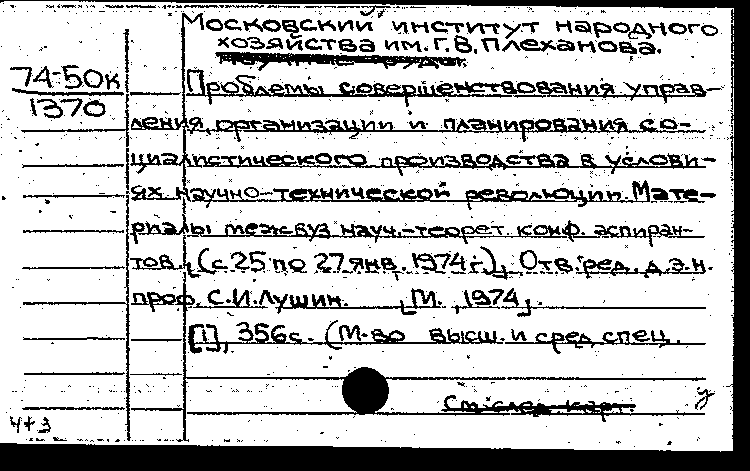 Московский институт народного
хозяйства им. Г.В. Плеханова.
74-50к
1370
Проблемы совершенствования управ-
ления, организации и планирования со-
циалистического производства в услови-
ях научно-технической революции. Мате-
риалы межвуз науч.-теорет. конф. аспиран-
тов. (с 25 по 27 янв. 1974 г.). Отв. ред. д.э.н.
проф. С.И. Лушин. [М., 1974].
[1], 356с. (М-во высш. и сред. спец.
См. след. карт.
у
4+3